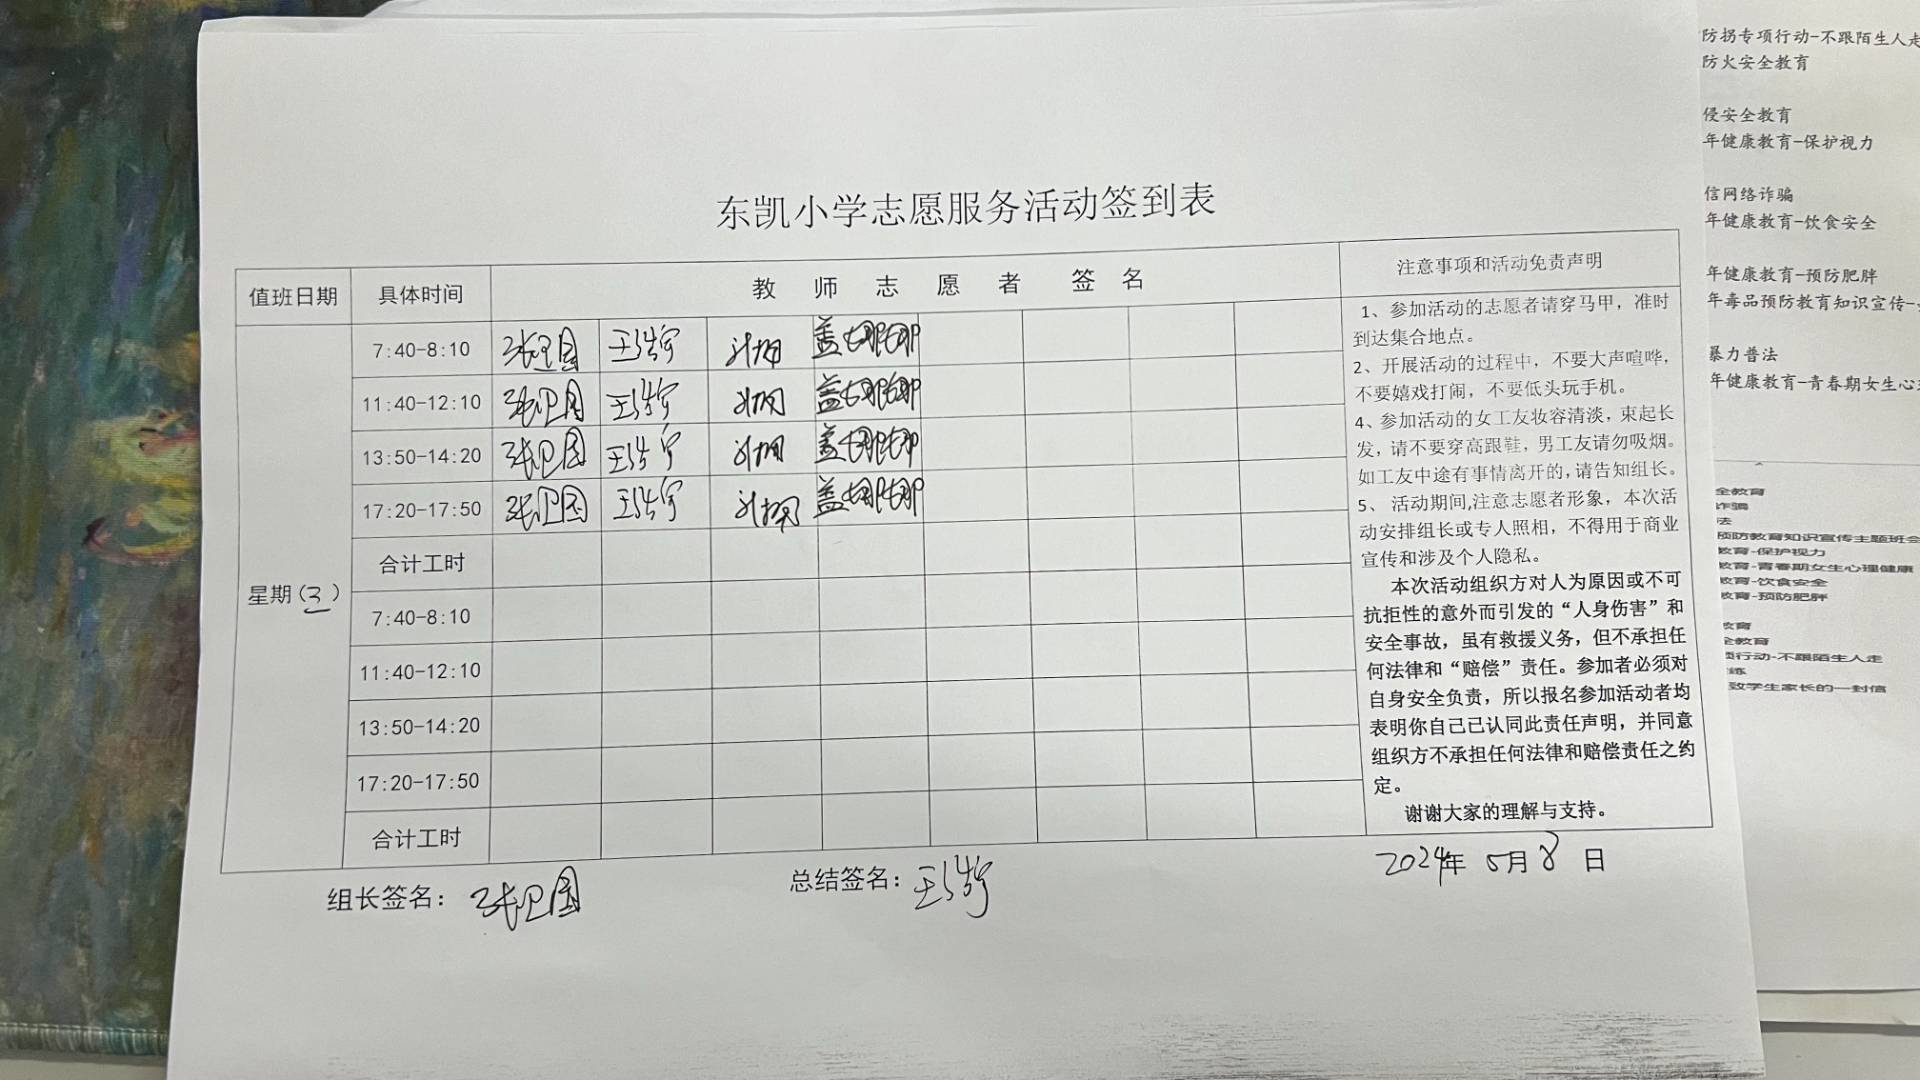 东凯小学志愿服务活动签到表
值班日期 具体时间 教师志愿者签名 注意事项和活动免责声明
星期(三)
7:40-8:10 张卫国 王浩宇 盖娜娜
11:40-12:10 张卫国 王浩宇 盖娜娜
13:50-14:20 张卫国 王浩宇 盖娜娜
17:20-17:50 张卫国 王浩宇 盖娜娜
合计工时
7:40-8:10
11:40-12:10
13:50-14:20
17:20-17:50
合计工时
1、参加活动的志愿者请穿马甲，准时
到达集合地点。
2、开展活动的过程中，不要大声喧哗，
不要嬉戏打闹，不要低头玩手机。
4、参加活动的女工友妆容清淡，束起长
发，请不要穿高跟鞋，男工友请勿吸烟。
如工友中途有事情离开的,请告知组长。
5、活动期间,注意志愿者形象，本次活
动安排组长或专人照相，不得用于商业
宣传和涉及个人隐私。
本次活动组织方对人为原因或不可
抗拒性的意外而引发的“人身伤害”和
安全事故，虽有救援义务，但不承担任
何法律和“赔偿”责任。参加者必须对
自身安全负责，所以报名参加活动者均
表明你自己已认同此责任声明，并同意
组织方不承担任何法律和赔偿责任之约
定。
谢谢大家的理解与支持。
组长签名：张卫国 总结签名：王浩宇 2024年 5月 8日
防拐专项行动-不跟陌生人走
防火安全教育
侵安全教育
年健康教育-保护视力
信网络诈骗
年健康教育-饮食安全
年健康教育-预防肥胖
年毒品预防教育知识宣传-
暴力普法
年健康教育-青春期女生心
全教育
诈骗
法
预防教育知识宣传主题班会
教育-保护视力
教育-青春期女生心理健康
教育-饮食安全
教育-预防肥胖
教育
全教育
项行动-不跟陌生人走
练
致学生家长的一封信